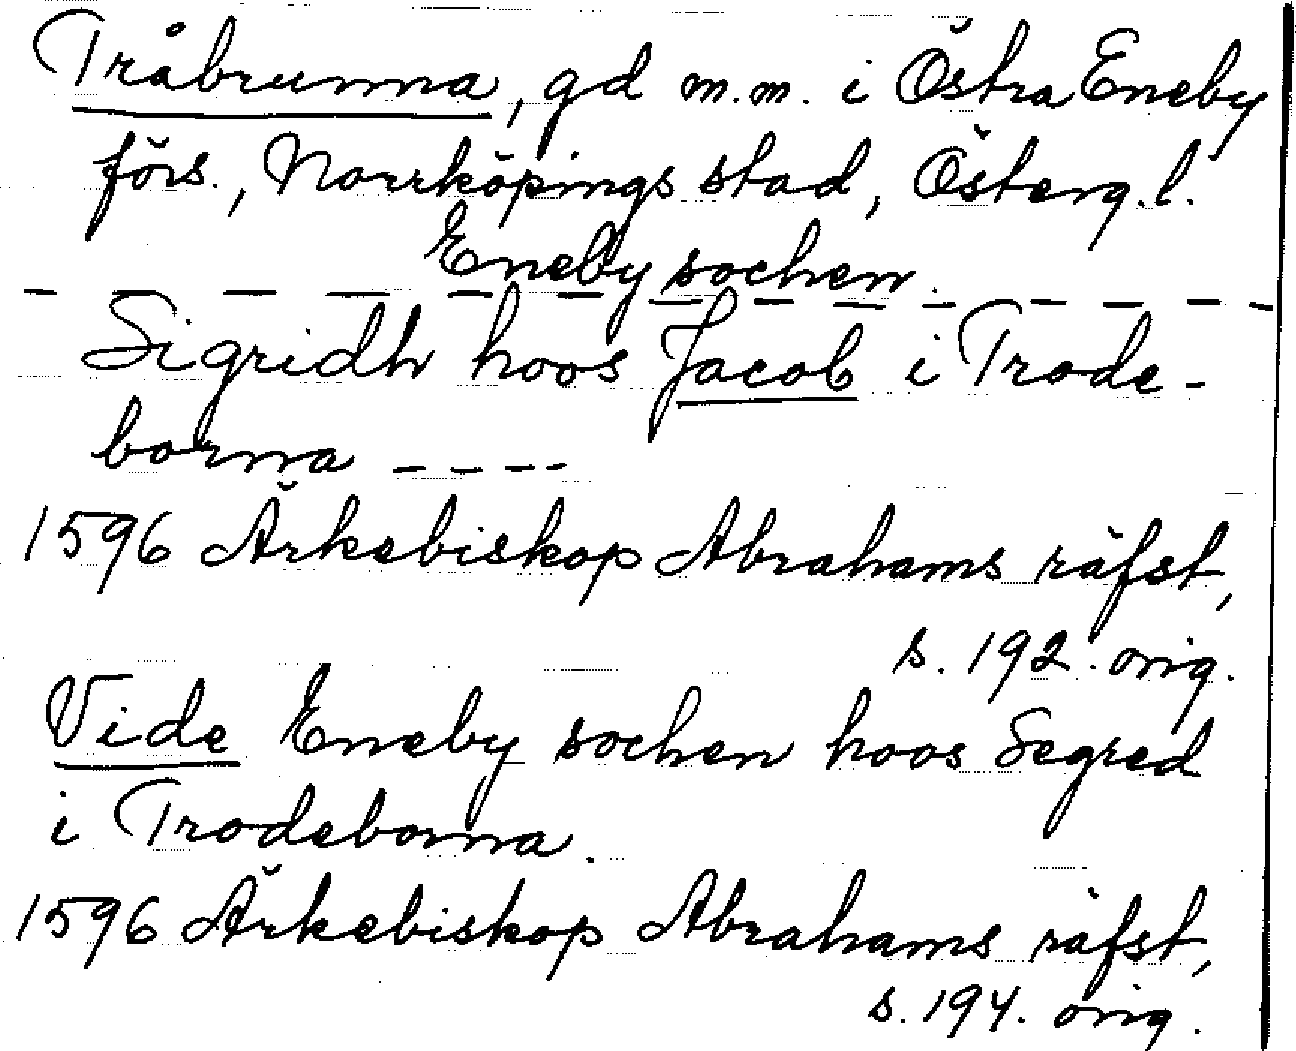 Tråbrunna, gd m.m. i Östra Eneby
förs., Norrköpings stad, Österg.l.
Eneby sochen.
Sigridh hoos Jacob i Trode-
borna ----
1596 Ärkebiskop Abrahams räfst,
s. 192. orig.
Vide Eneby sochen hoos Segred
i Trodeborna.
1596 Ärkebiskop Abrahams räfst,
s. 194. orig.